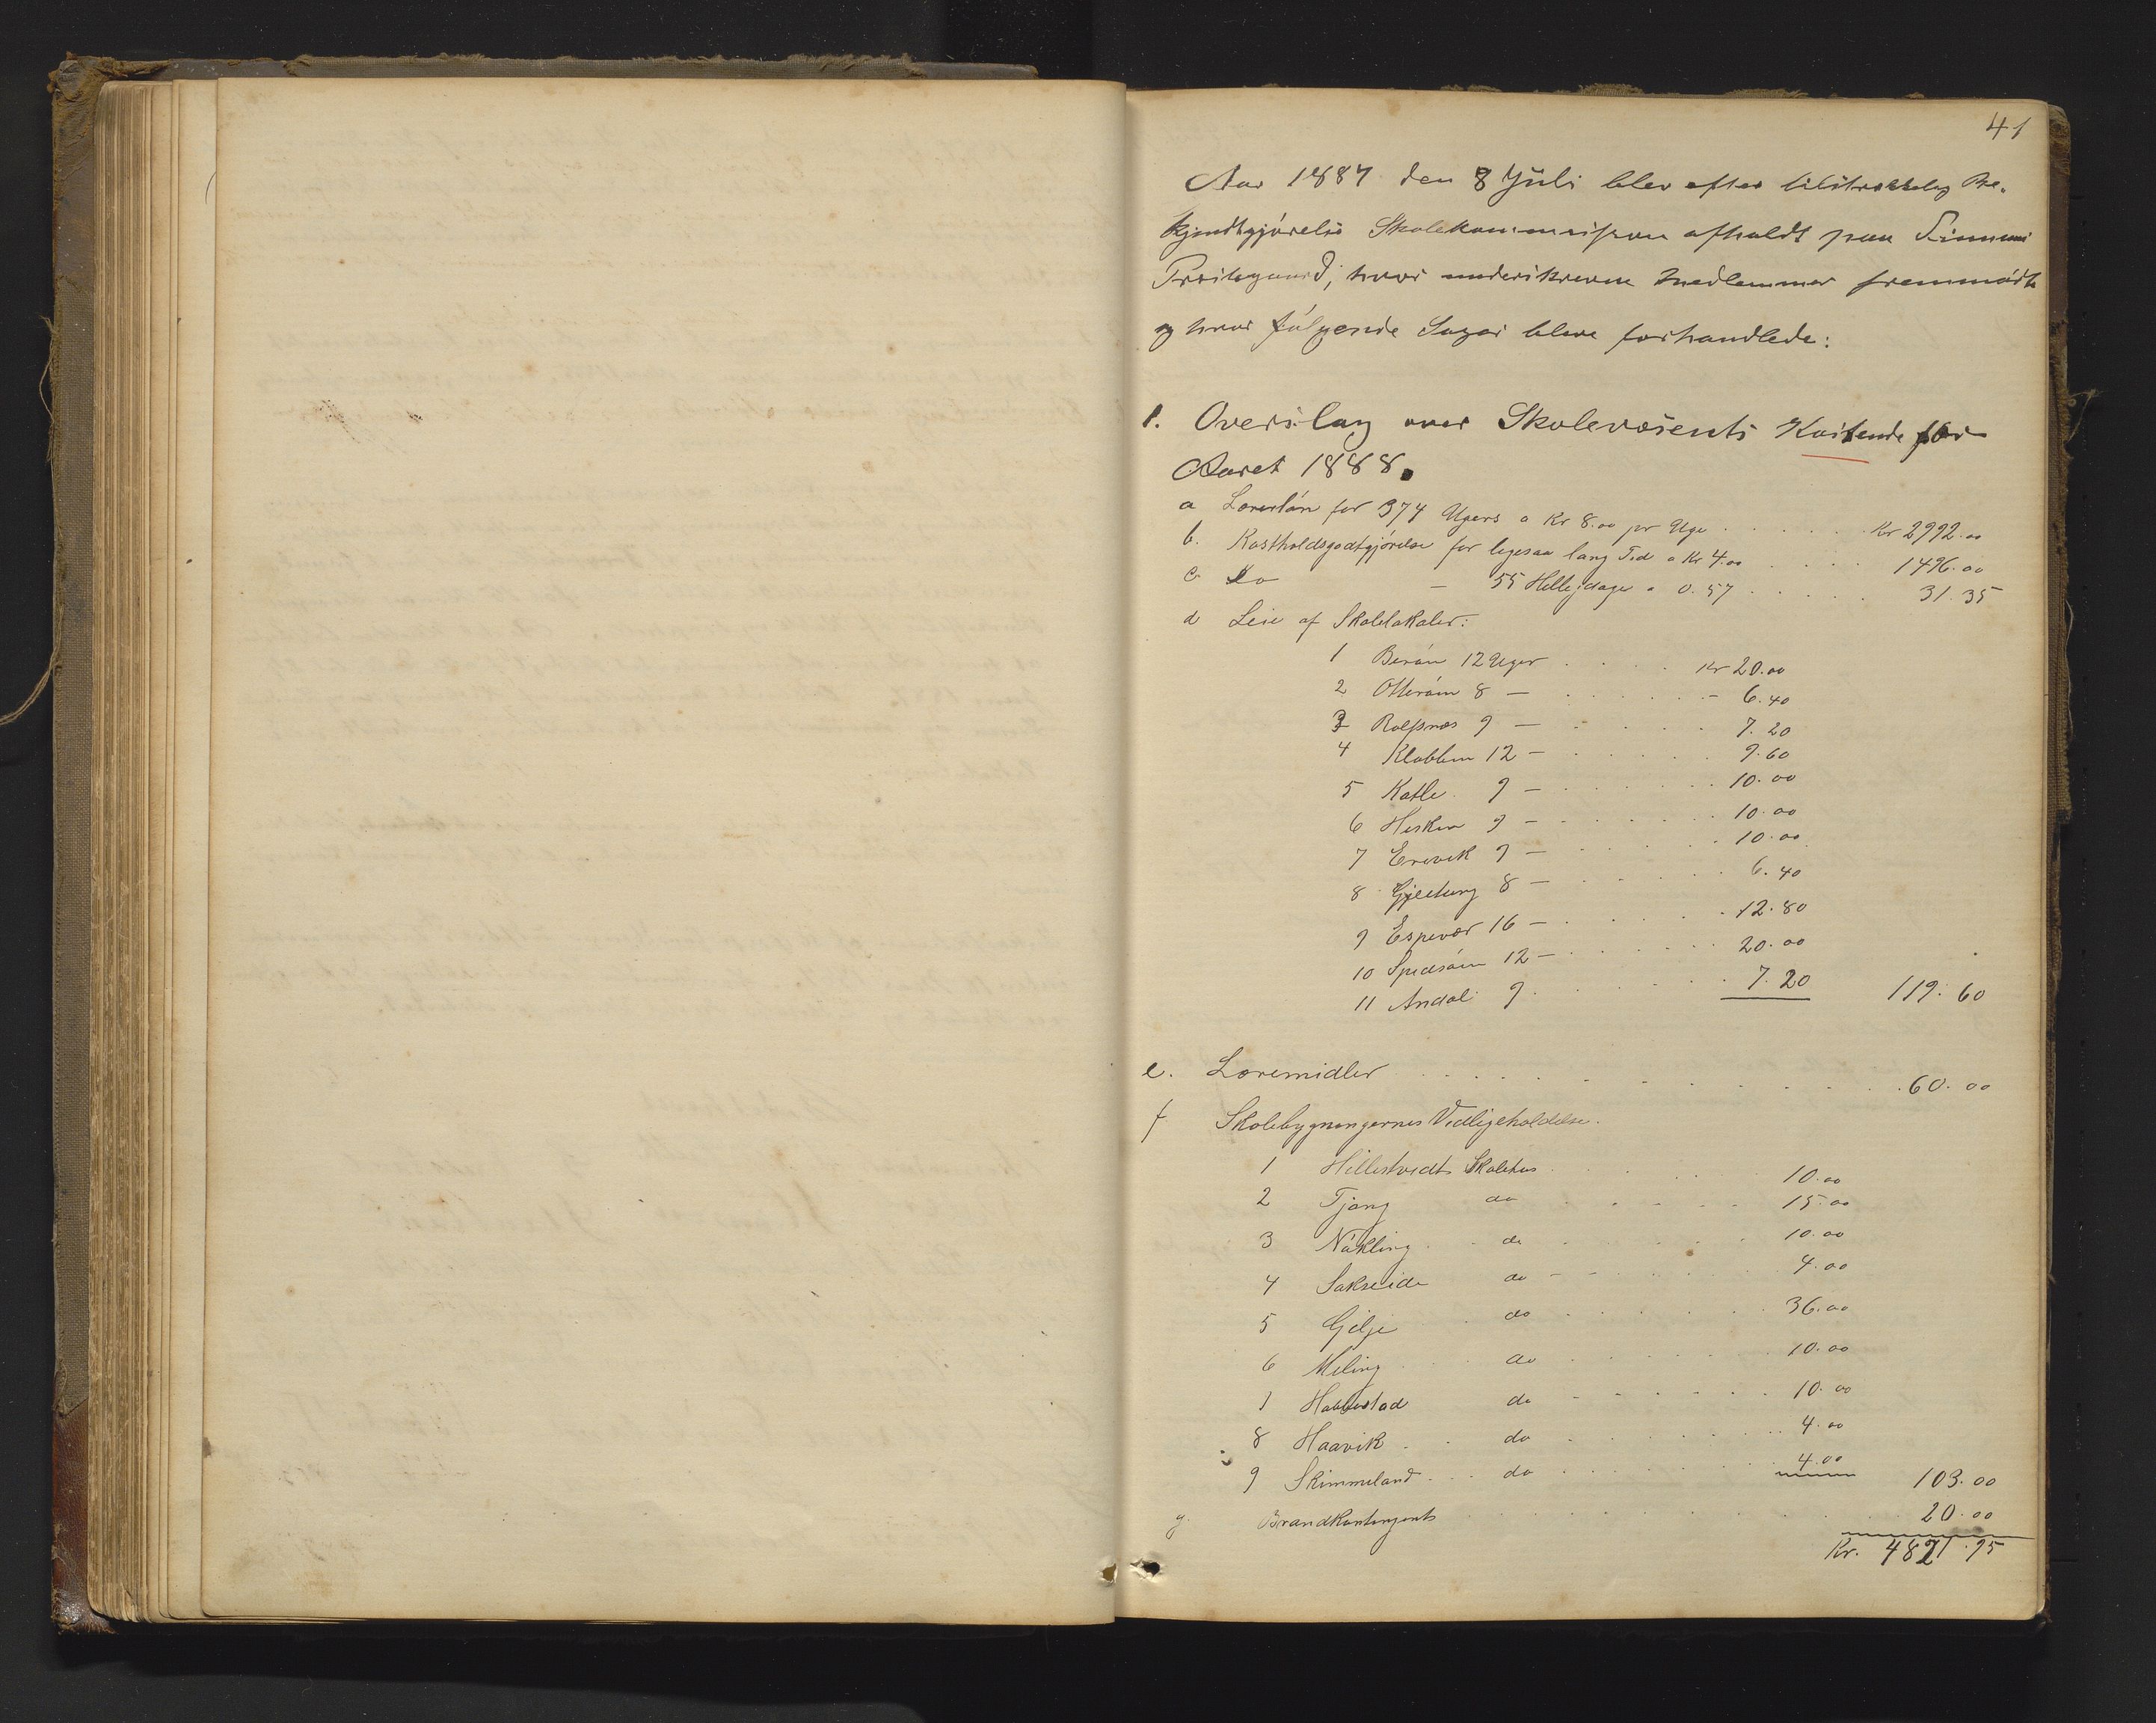 41
Aar 1887 den 8 Juli blev efter tilstrækkelig Be-
kjendtgjørelse Skolekommission afholdt paa Finnaas
Præstegaard, hvor underskrevne Medlemmer fremmødte
og hvor følgende Sager bleve forhandlede:
1. Overslag over Skolevæsenets Kostende for
Aaret 1888.
a Lærerløn for 374 Ugers a Kr 8.00 pr Uge . . . . . Kr 2992.00
b. Kostholdsgodtgjørelse for ligesaa lang Tid a Kr 4.00 . . . . 1496.00
c Do — 55 Helligdage a 0.57 . . . . . 31.35
d Leie af Skolelokaler:
1 Børøen 12 Uger . . . . Kr 20.00
2 Otterøen 8 — . . . . . . — 6.40
3 Rolfsnæs 9 — . . . . . 7.20
4 Klubben 12 — . . . . . 9.60
5 Katle 9 — . . . . . . 10.00
6 Hisken 9 — . . . . . . 10.00
7 Erevik 9 — . . . . . 10.00
8 Gjeitung 8 — . . . . . 6.40
9 Espevær 16 — . . . . . 12.80
10 Spidsøen 12 — . . . . . . 20.00
11 Andal 9 . . . . . . 7.20 119.60
e. Læremidler . . . . . . . . . . 60.00
f Skolebygningernes Vedligeholdelse.
1 Hillestvedt Skolehus . . . . 10.00
2 Tjong do . . . . . 15.00
3 Nøkling do . . . . . . 10.00
4 Sakseide do — — . . . . 4.00
5 Gilje do . . . . . . 36.00
6 Meling do . . . . . . 10.00
7 Habbestad do . . . . . . 10.00
8 Haavik do . . . . . . 4.00
9 Skimmeland do . . . . . . 4.00 103.00
g. Brandkontingent . . . . . . . . 20.00
Kr. 4821.95